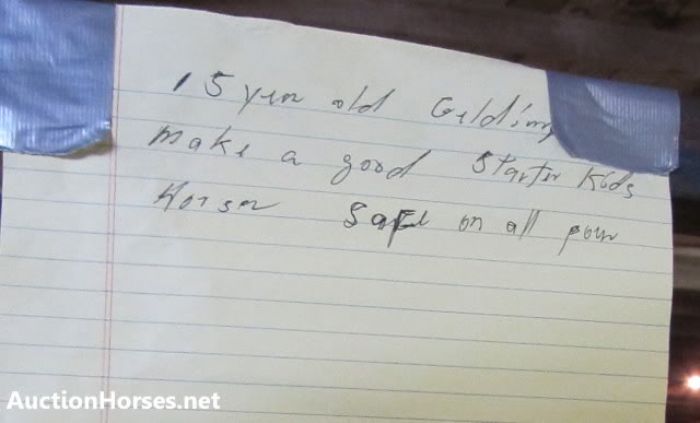 15 year old Gelding
make a good Starter Kids
Horse Safe on all four
AuctionHorses.net